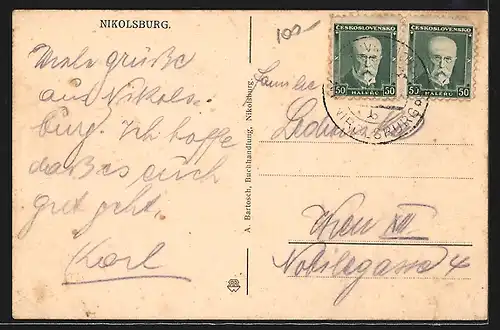 NIKOLSBURG.
100-
Viele grüße
aus Nikols-
burg. Ich hoffe
daß es euch
gut geht.
Karl
A. Bartosch, Buchhandlung, Nikolsburg.
ČESKOSLOVENSKO
50 50
HALÉŘŮ
ČESKOSLOVENSKO
50 50
HALÉŘŮ
NIKOLSBURG
Familie
Wien XV.
Nobilegasse 4